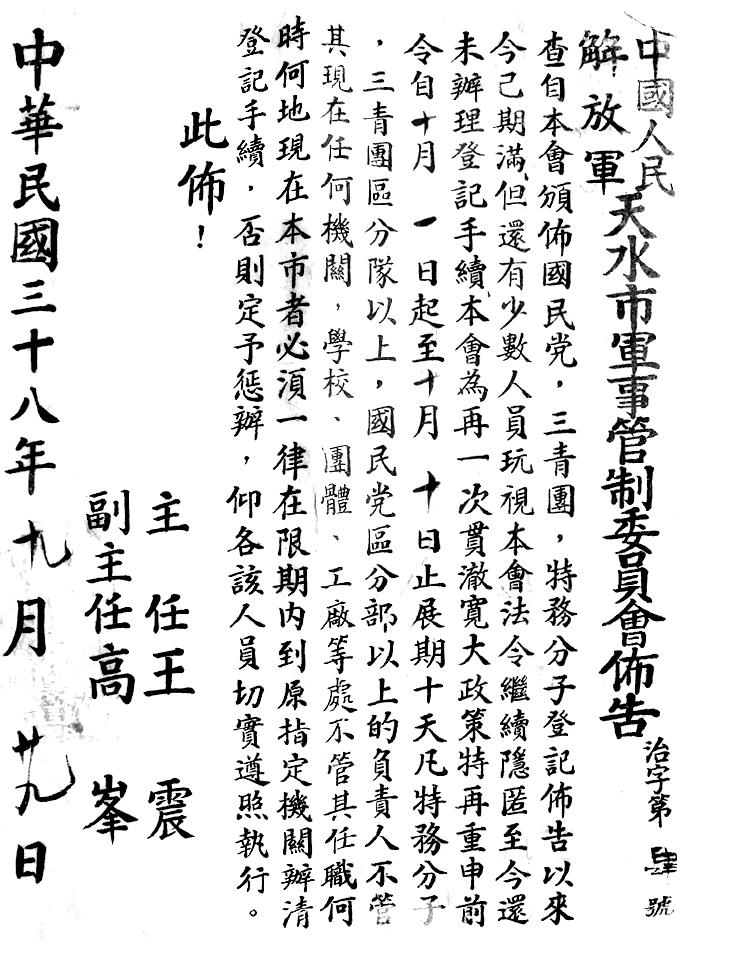 中國人民
解放軍
天水市軍事管制委員會佈告
治字第肆號
查自本會頒佈國民党，三青團，特務分子登記佈告以來
今已期滿，但還有少數人員玩視本會法令繼續隱匿至今還
未辦理登記手續，本會為再一次貫澈寬大政策特再重申前
令自十月一日起至十月十日止展期十天凡特務分子
，三青團區分隊以上，國民党區分部以上的負責人不管
其現在任何機關，學校、團體、工廠等處不管其任職何
時何地現在本市者必須一律在限期內到原指定機關辦清
登記手續，否則定予惩辦，仰各該人員切實遵照執行。
此佈！
主任王震
副主任高峯
中華民國三十八年九月廿九日